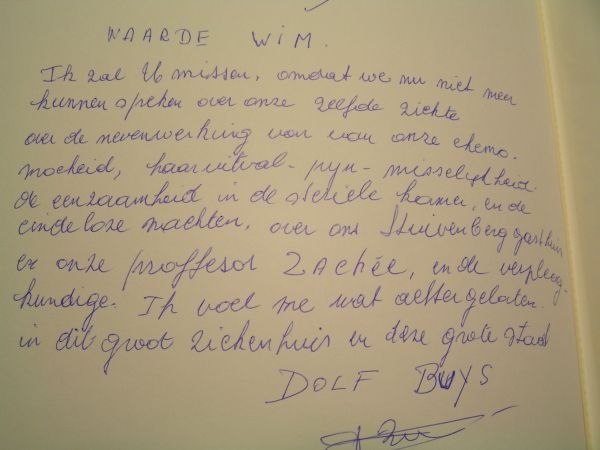 WAARDE WIM.
Ik zal U missen, omdat we nu niet meer
kunnen spreken over onze zelfde ziekte
over de nevenwerking van van onze chemo.
moeheid, haaruitval - pijn - misselijkheid.
de eenzaamheid in de steriele kamer, en de
eindeloze nachten, over ons Stuivenberg gasthuis
en onze proffesor ZACHÉE, en de verpleeg-
kundige. Ik voel me wat achtergelaten.
in dit groot ziekenhuis en deze grote stad
DOLF BUYS